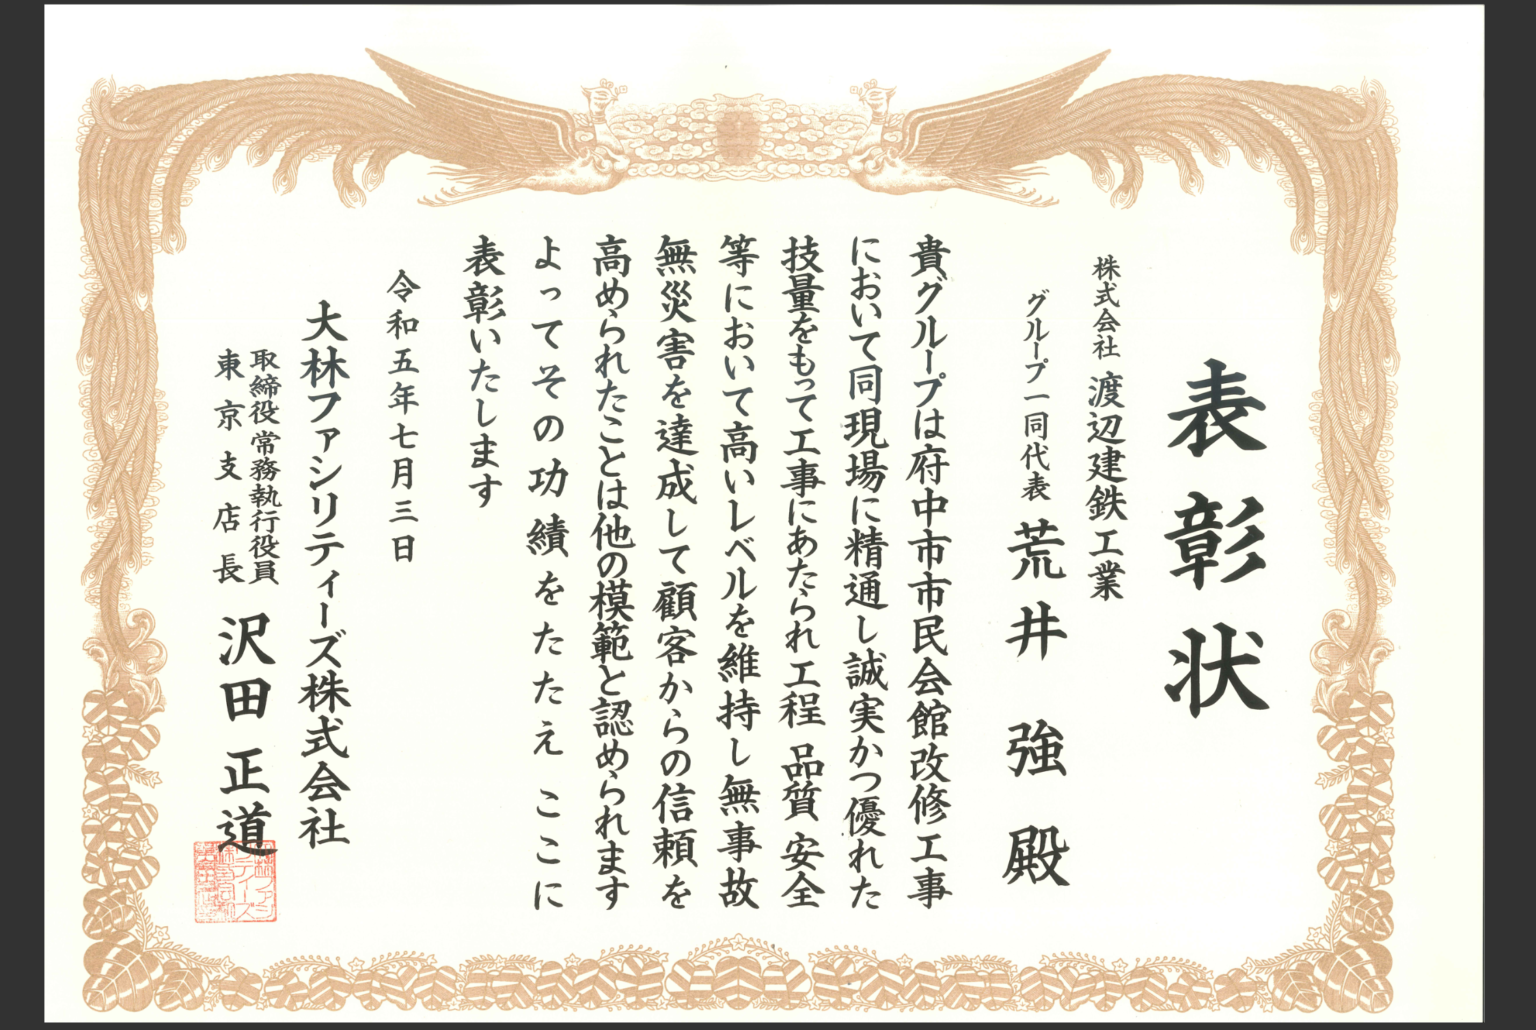 表彰状
株式会社 渡辺建鉄工業
グループ一同代表 荒井 強 殿
貴グループは府中市市民会館改修工事
において同現場に精通し誠実かつ優れた
技量をもって工事にあたられ工程 品質 安全
等において高いレベルを維持し無事故
無災害を達成して顧客からの信頼を
高められたことは他の模範と認められます
よってその功績をたたえ ここに
表彰いたします
令和五年七月三日
大林ファシリティーズ株式会社
取締役常務執行役員
東京支店長 沢田正道